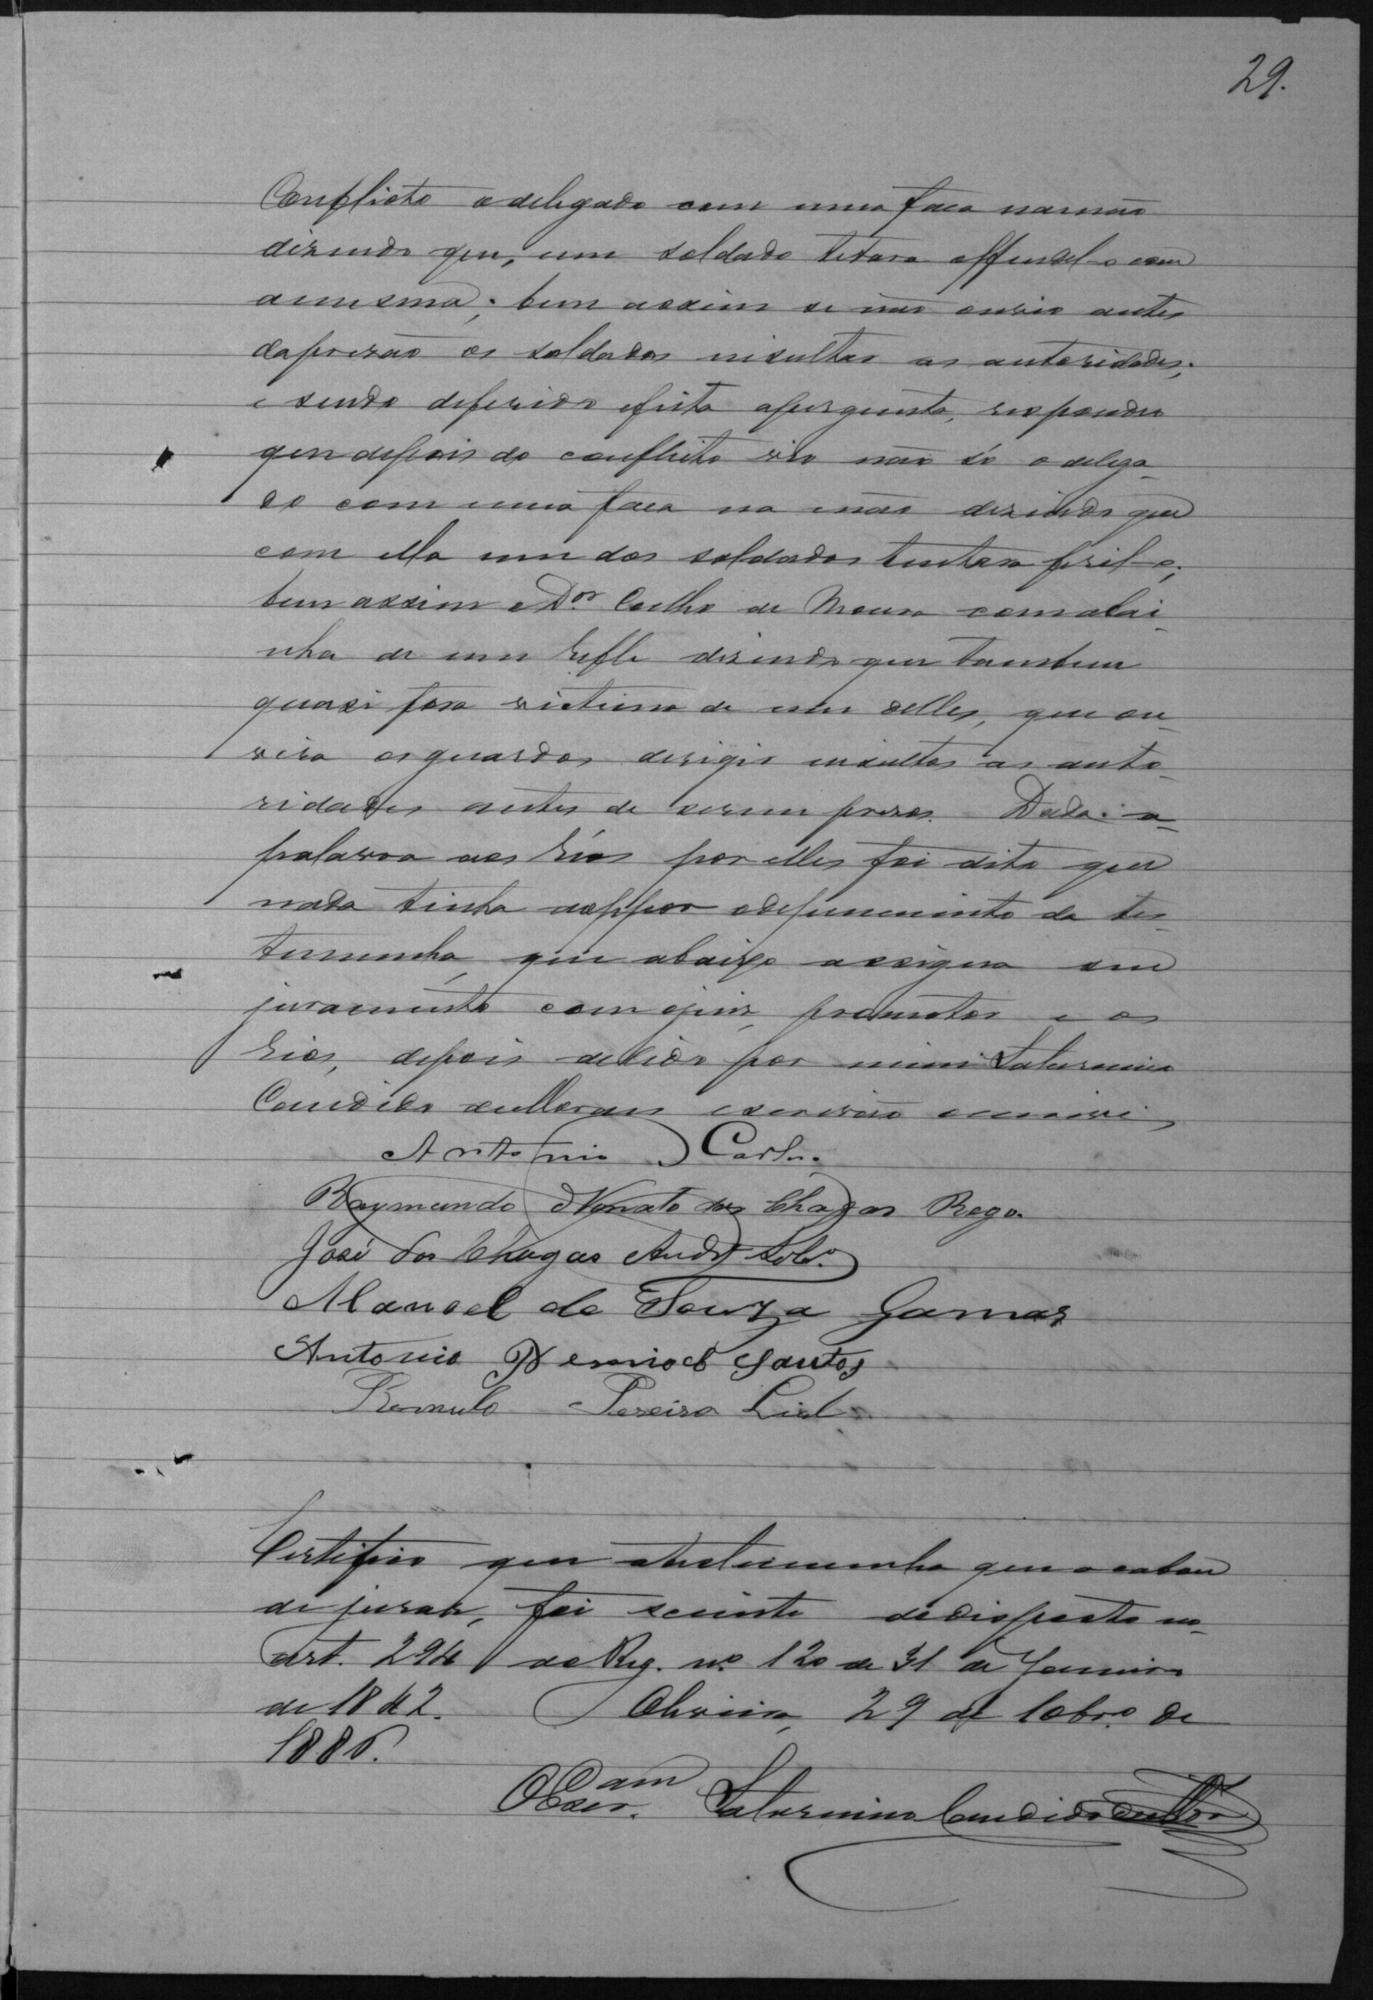 29.
Conflicto o delegado com uma faca na mão
dizendo que, um soldado tetara offendel-o com
a mesma; bem assim se não ouvio antes
da prizão os soldados insultar as autoridades;
e sendo deferido e feita a pergunta, respondeu
que depois do conflicto vio não só o delega-
do com uma faca na mão dizendo que
com ella um dos soldados tentara feril-o;
bem assim o Dor Coelho de Moura com a bai-
nha de um refle dizendo que tambem
quasi fora victima de um delles, que ou-
vira os guardas dirigir insultos as auto-
ridades antes de serem prezos. Dada a
palavra aos Réos por elles foi dito que
nada tinha a oppor o depuemento da tes-
temunha, que abaixo assigna seu
juramento com o juiz, promotor e os
Réos, depois de lido por mim Saturnino
Candido escrivão escrevi,
Antonio Carlos
Raymundo Nonato das Chagas Rego.
José das Chagas Andre Sobro.
Manoel de Souza Gamas
Antonio dos Santos
Romulo Pereira
Certifico que a testemunha que acabou
de jurar, foi sciente do disposto no
art. 294 do Reg. no 120 de 31 de Janeiro
de 1842. Oliveira, 29 de 10bro de
1886.
O Escr. am Saturnino Candido